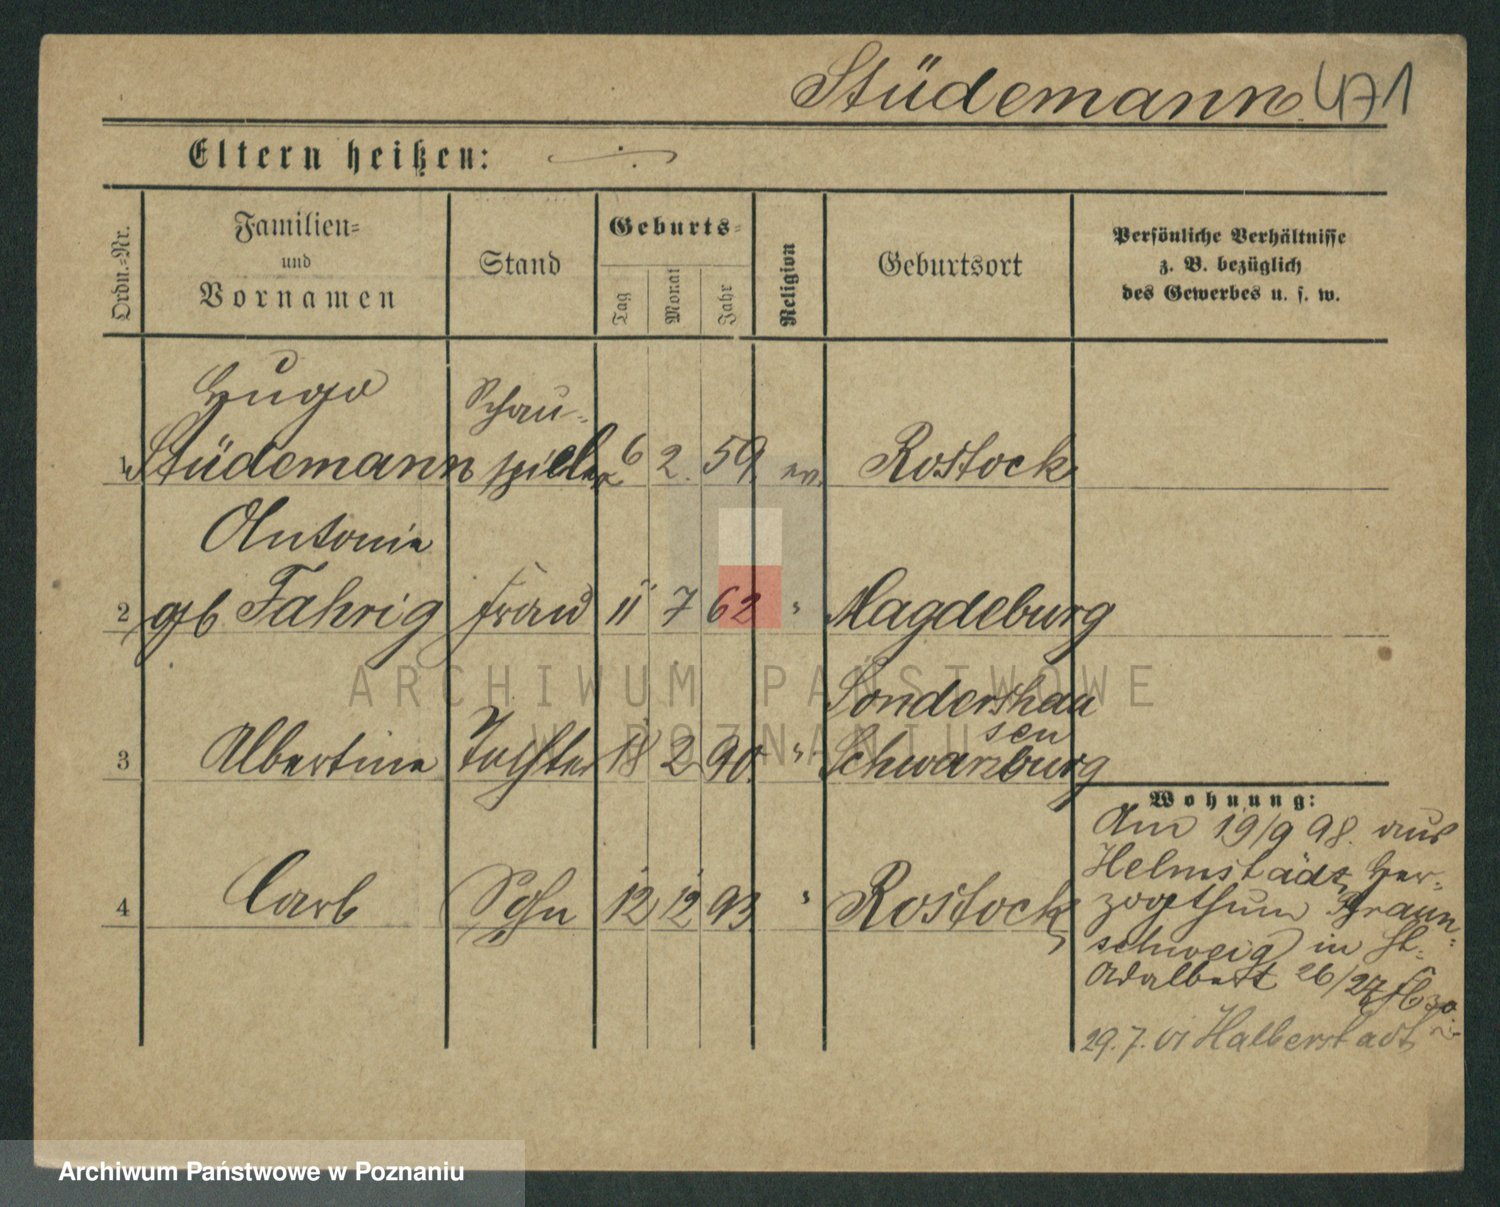 Stüdemann. 471
Eltern heißen:
Ordn.-Nr.
Familien-
und
Vornamen
Stand
Geburts-
Tag
Monat
Jahr
Religion
Geburtsort
Persönliche Verhältnisse
z. B. bezüglich
des Gewerbes u. s. w.
Hugo Schau-
1 Stüdemann spieler 6 2. 59. ev. Rostock
Antonie
2 gb Fahrig Frau 11 7 62 " Magdeburg
Sondershau
sen
3 Albertine Tochter 18 2 90. " Schwarzburg
4 Carl Sohn 12 12 93 " Rostock
Wohnung:
Am 19/9 98. aus
Helmstädt, Her-
zogthum Braun-
schweig in St.
Adalbert 26/27
29.7.01 Halberstadt
ARCHIWUM PAŃSTWOWE
W POZNANIU
Archiwum Państwowe w Poznaniu